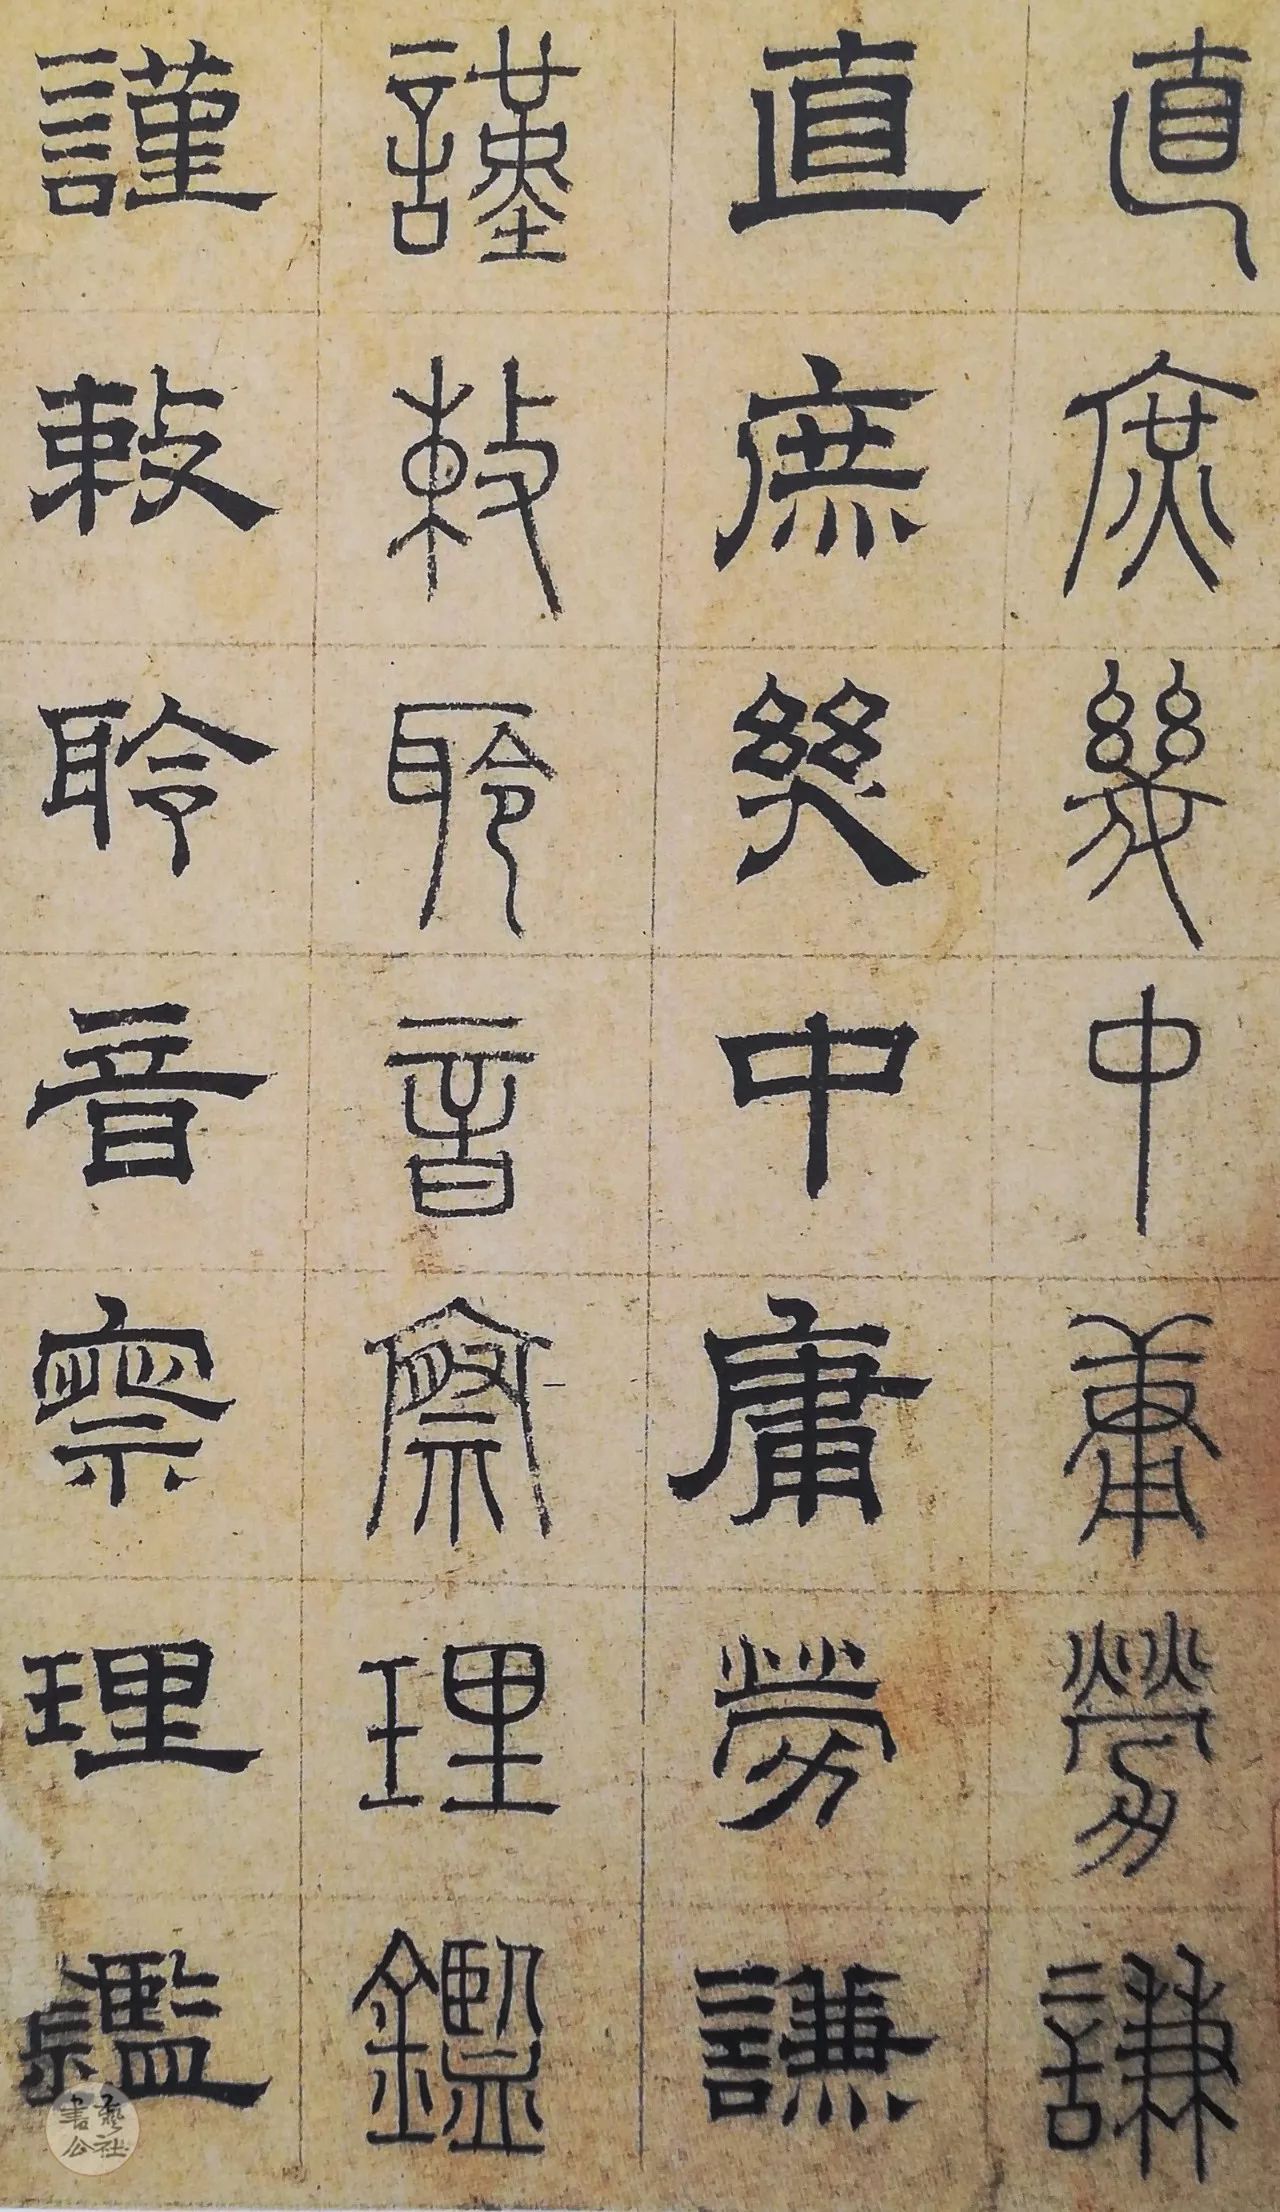 直庶幾中庸勞謙
直庶幾中庸勞謙
謹敕聆音察理鑑
謹敕聆音察理鑑
書藝公社